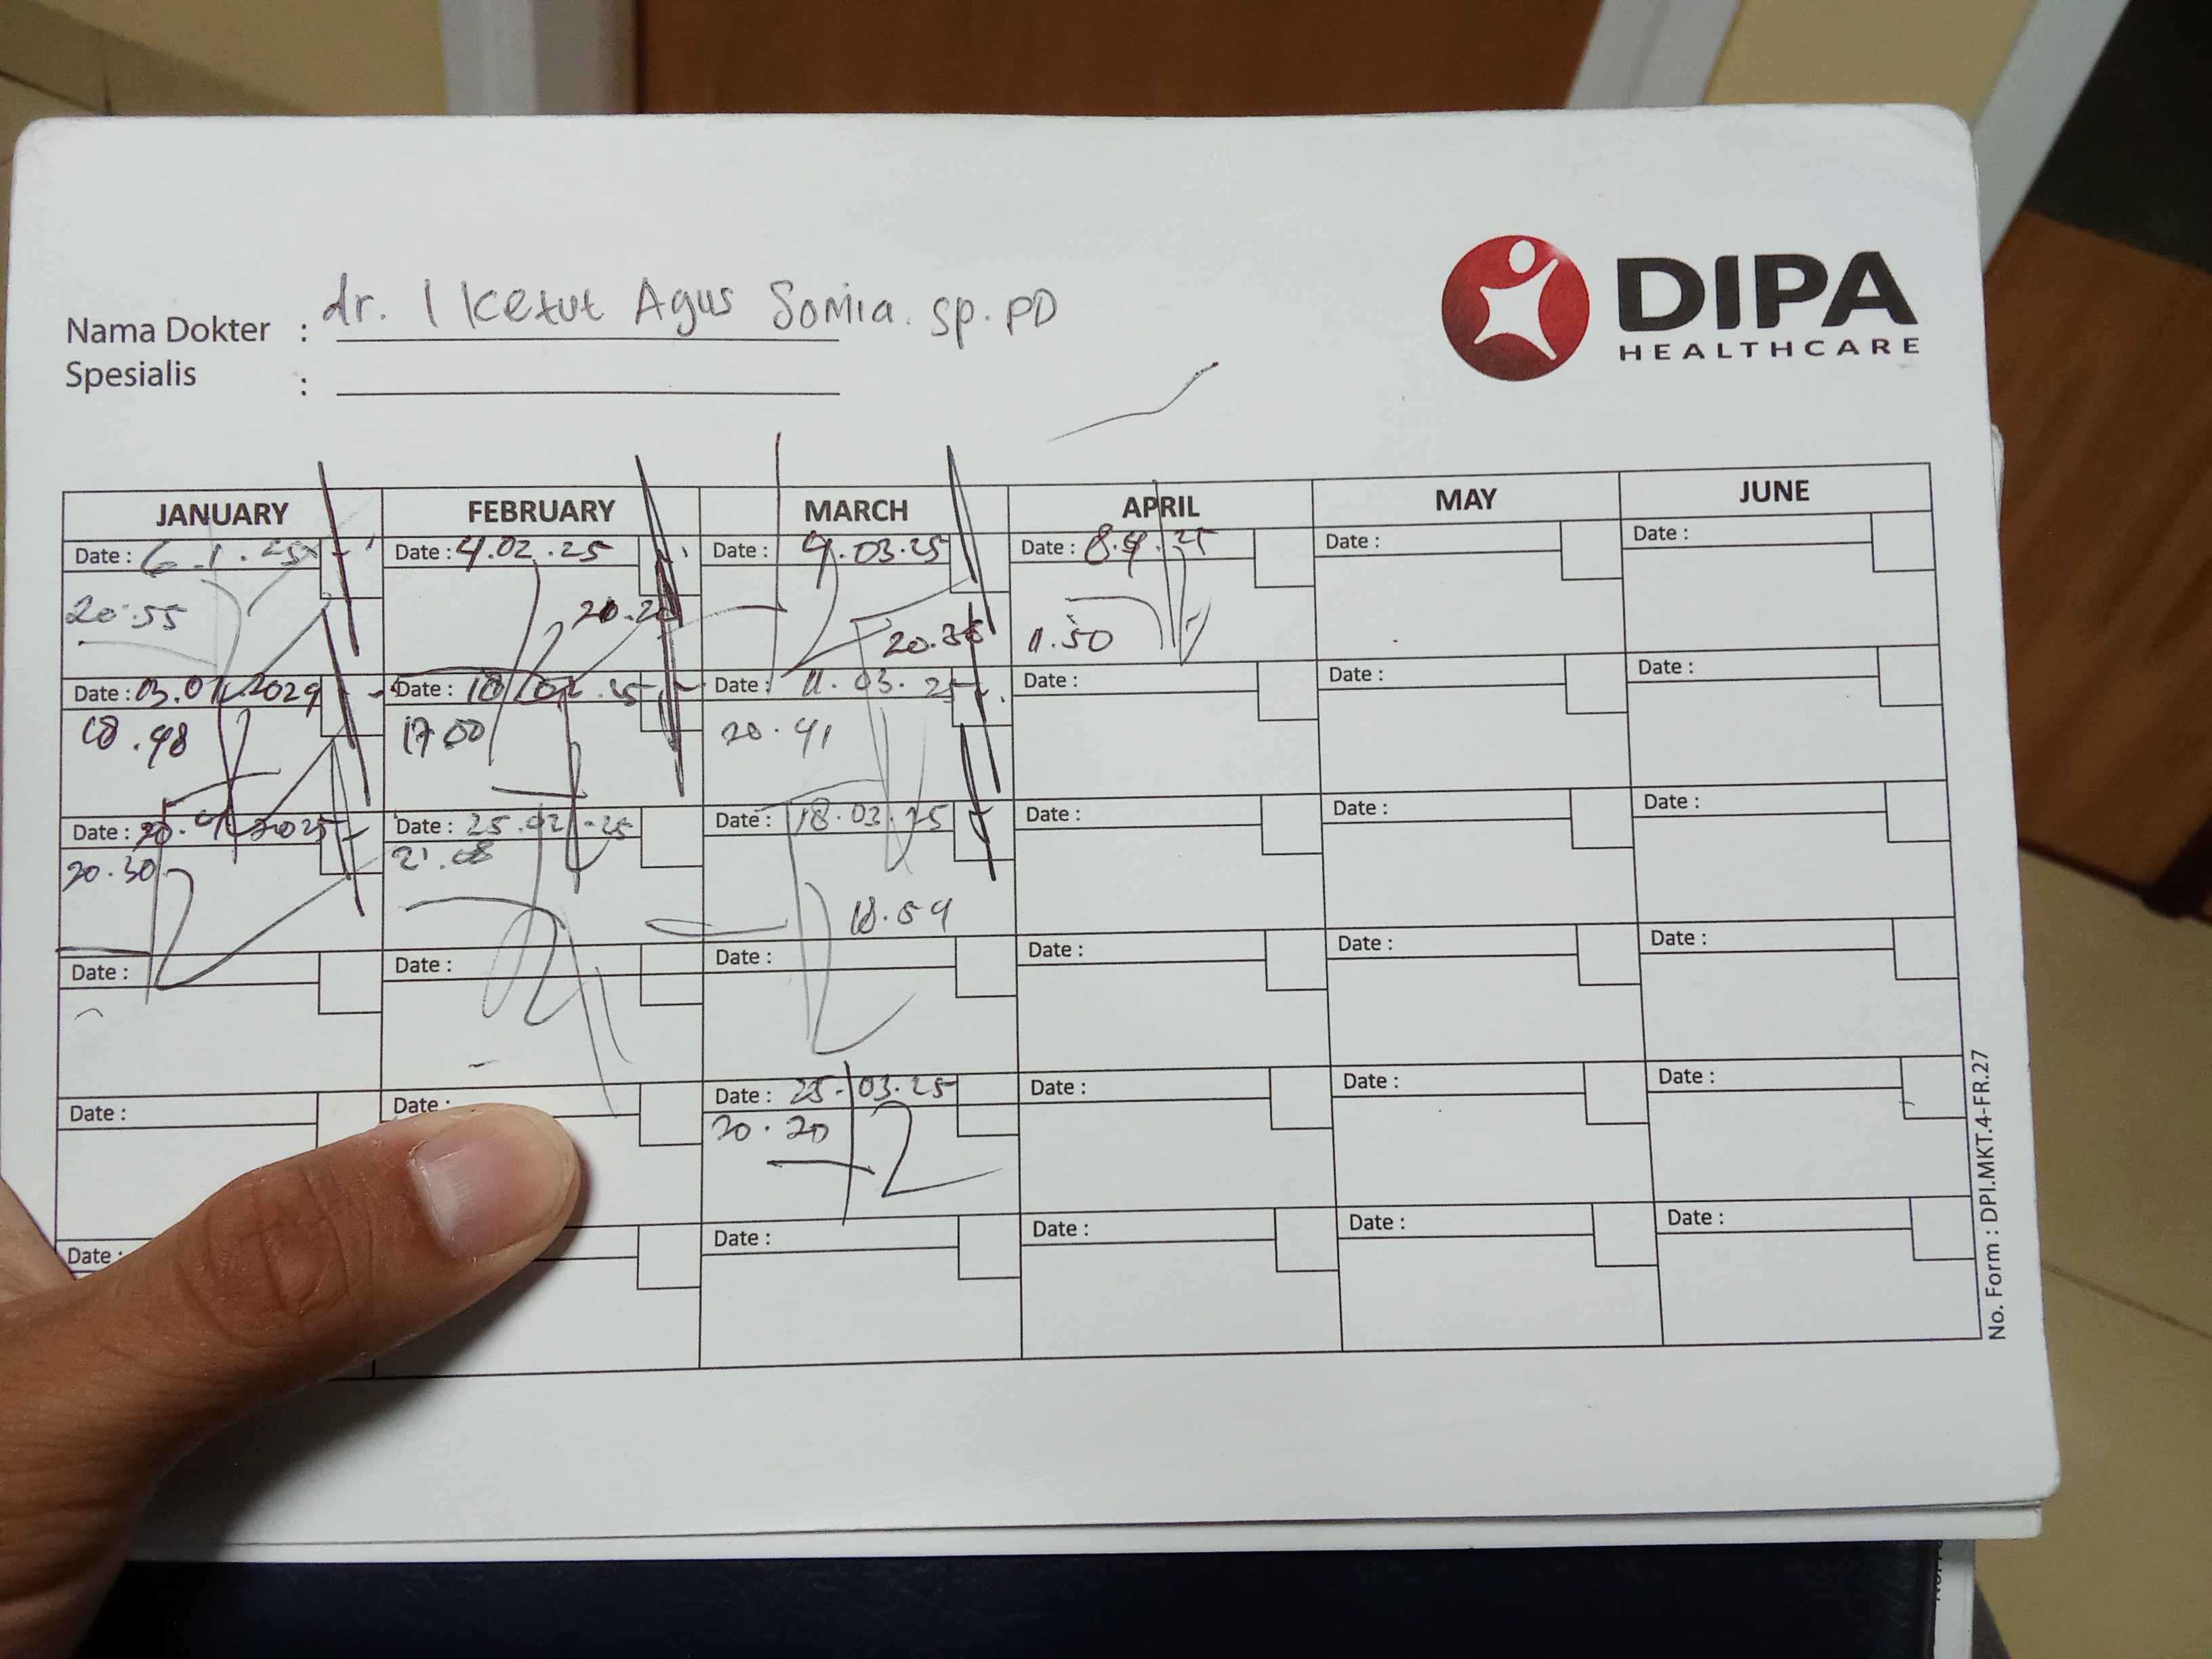 DIPA
HEALTHCARE
Nama Dokter : dr. I Ketut Agus Somia. Sp. PD
Spesialis :
JANUARY FEBRUARY MARCH APRIL MAY JUNE
Date : 6.1.25 Date : 4.02.25 Date : 4.03.25 Date : 8.4.25 Date : Date :
20.55 20.35 11.50
Date : Date : Date : 11.03.25 Date : Date : Date :
18.48 17.00 20.41
Date : Date : 25.02.25 Date : 18.03.25 Date : Date : Date :
20.30 21.08 18.59
Date : Date : Date : Date : Date : Date :
Date : Date : Date : 25.03.25 Date : Date : Date :
20.20
Date : Date : Date : Date : Date :
No. Form : DPI.MKT.4-FR.27